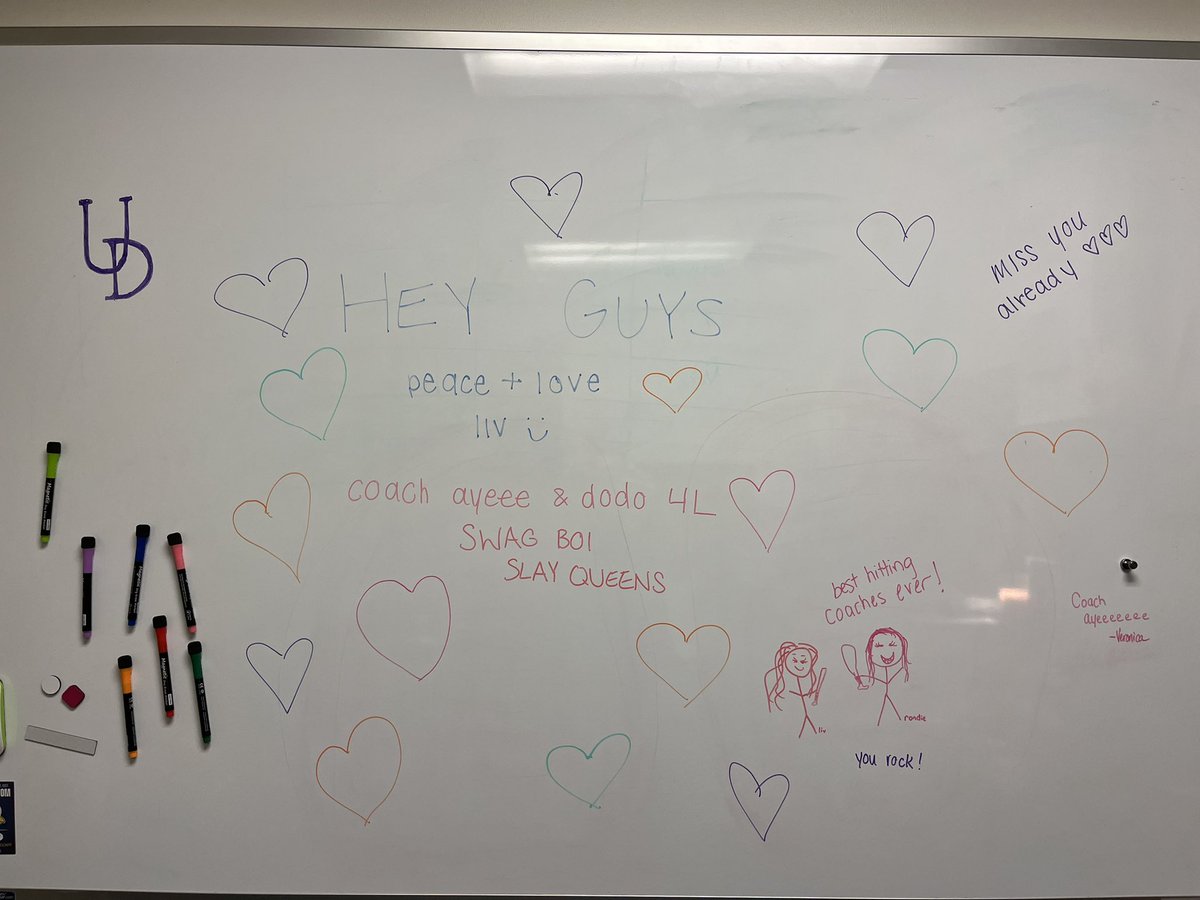 UD
HEY GUYS
miss you
already
peace + love
liv
coach ayeee & dodo 4L
SWAG BOI
SLAY QUEENS
best hitting
coaches ever!
liv
rondie
you rock!
Coach
ayeeeeeee
-Veronica